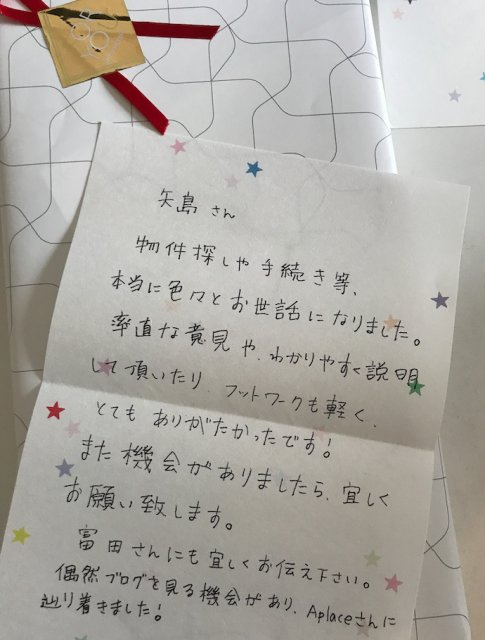 矢島さん
物件探しや手続き等、
本当に色々とお世話になりました。
率直な意見や、わかりやすく説明
して頂いたり、フットワークも軽く、
とてもありがたかったです!
また機会がありましたら、宜しく
お願い致します。
富田さんにも宜しくお伝え下さい。
偶然ブログを見る機会があり、Aplaceさんに
辿り着きました!